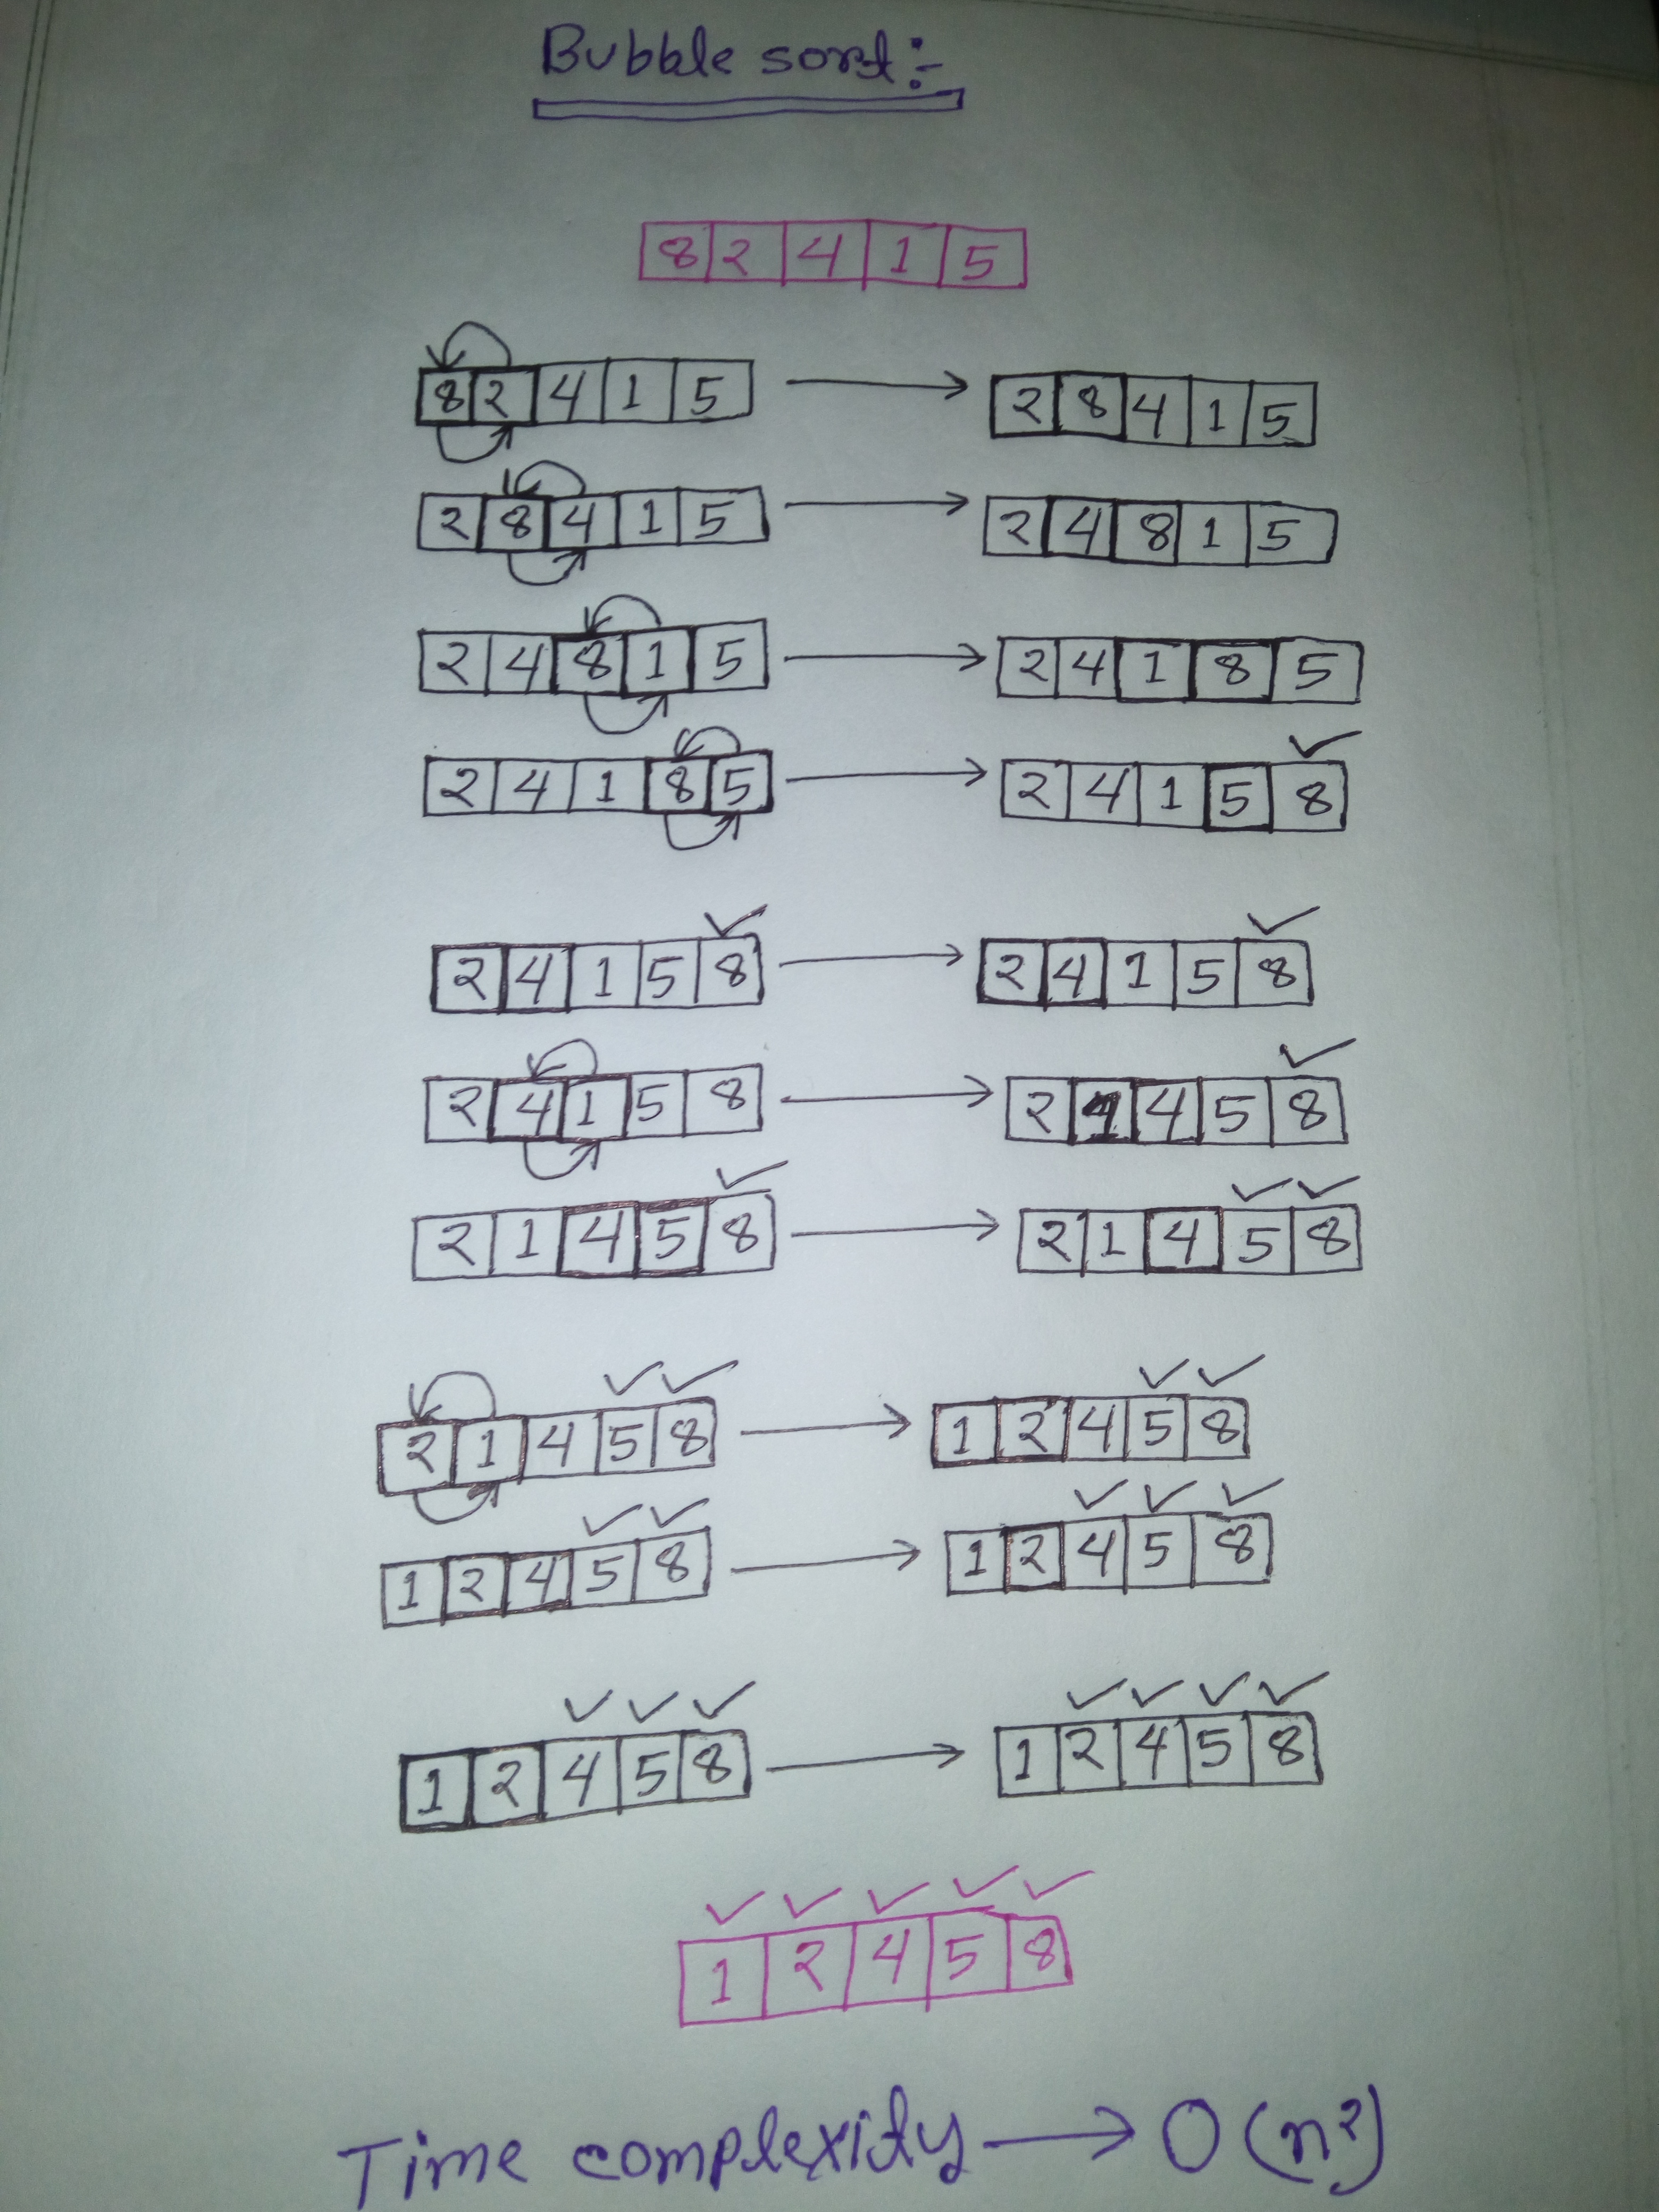 Bubble sort:-
8 2 4 1 5
8 2 4 1 5 → 2 8 4 1 5
2 8 4 1 5 → 2 4 8 1 5
2 4 8 1 5 → 2 4 1 8 5
2 4 1 8 5 → 2 4 1 5 8
2 4 1 5 8 → 2 4 1 5 8
2 4 1 5 8 → 2 1 4 5 8
2 1 4 5 8 → 2 1 4 5 8
2 1 4 5 8 → 1 2 4 5 8
1 2 4 5 8 → 1 2 4 5 8
1 2 4 5 8 → 1 2 4 5 8
1 2 4 5 8
Time complexity → O(n²)